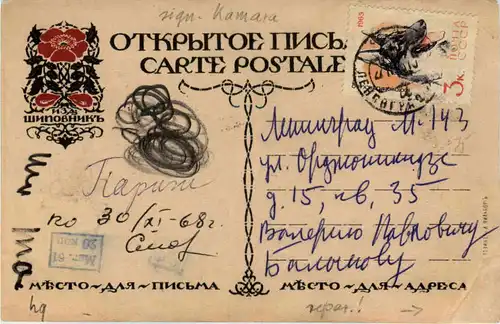 sign. Kamara
ОТКРЫТОЕ ПИСЬ
CARTE POSTALE
ИЗД.
ШИПОВНИКЪ
1965
ПОЧТА
СССР
3к
ЛЕНИНГРАД
Париж
по 30/XI-68г.
Маг. 61
Ленинград М-143
ул. Орджоникидзе
д. 15, кв. 35
Валерию Павловичу
МѢСТО-ДЛЯ-ПИСЬМА
МѢСТО-ДЛЯ-АДРЕСА